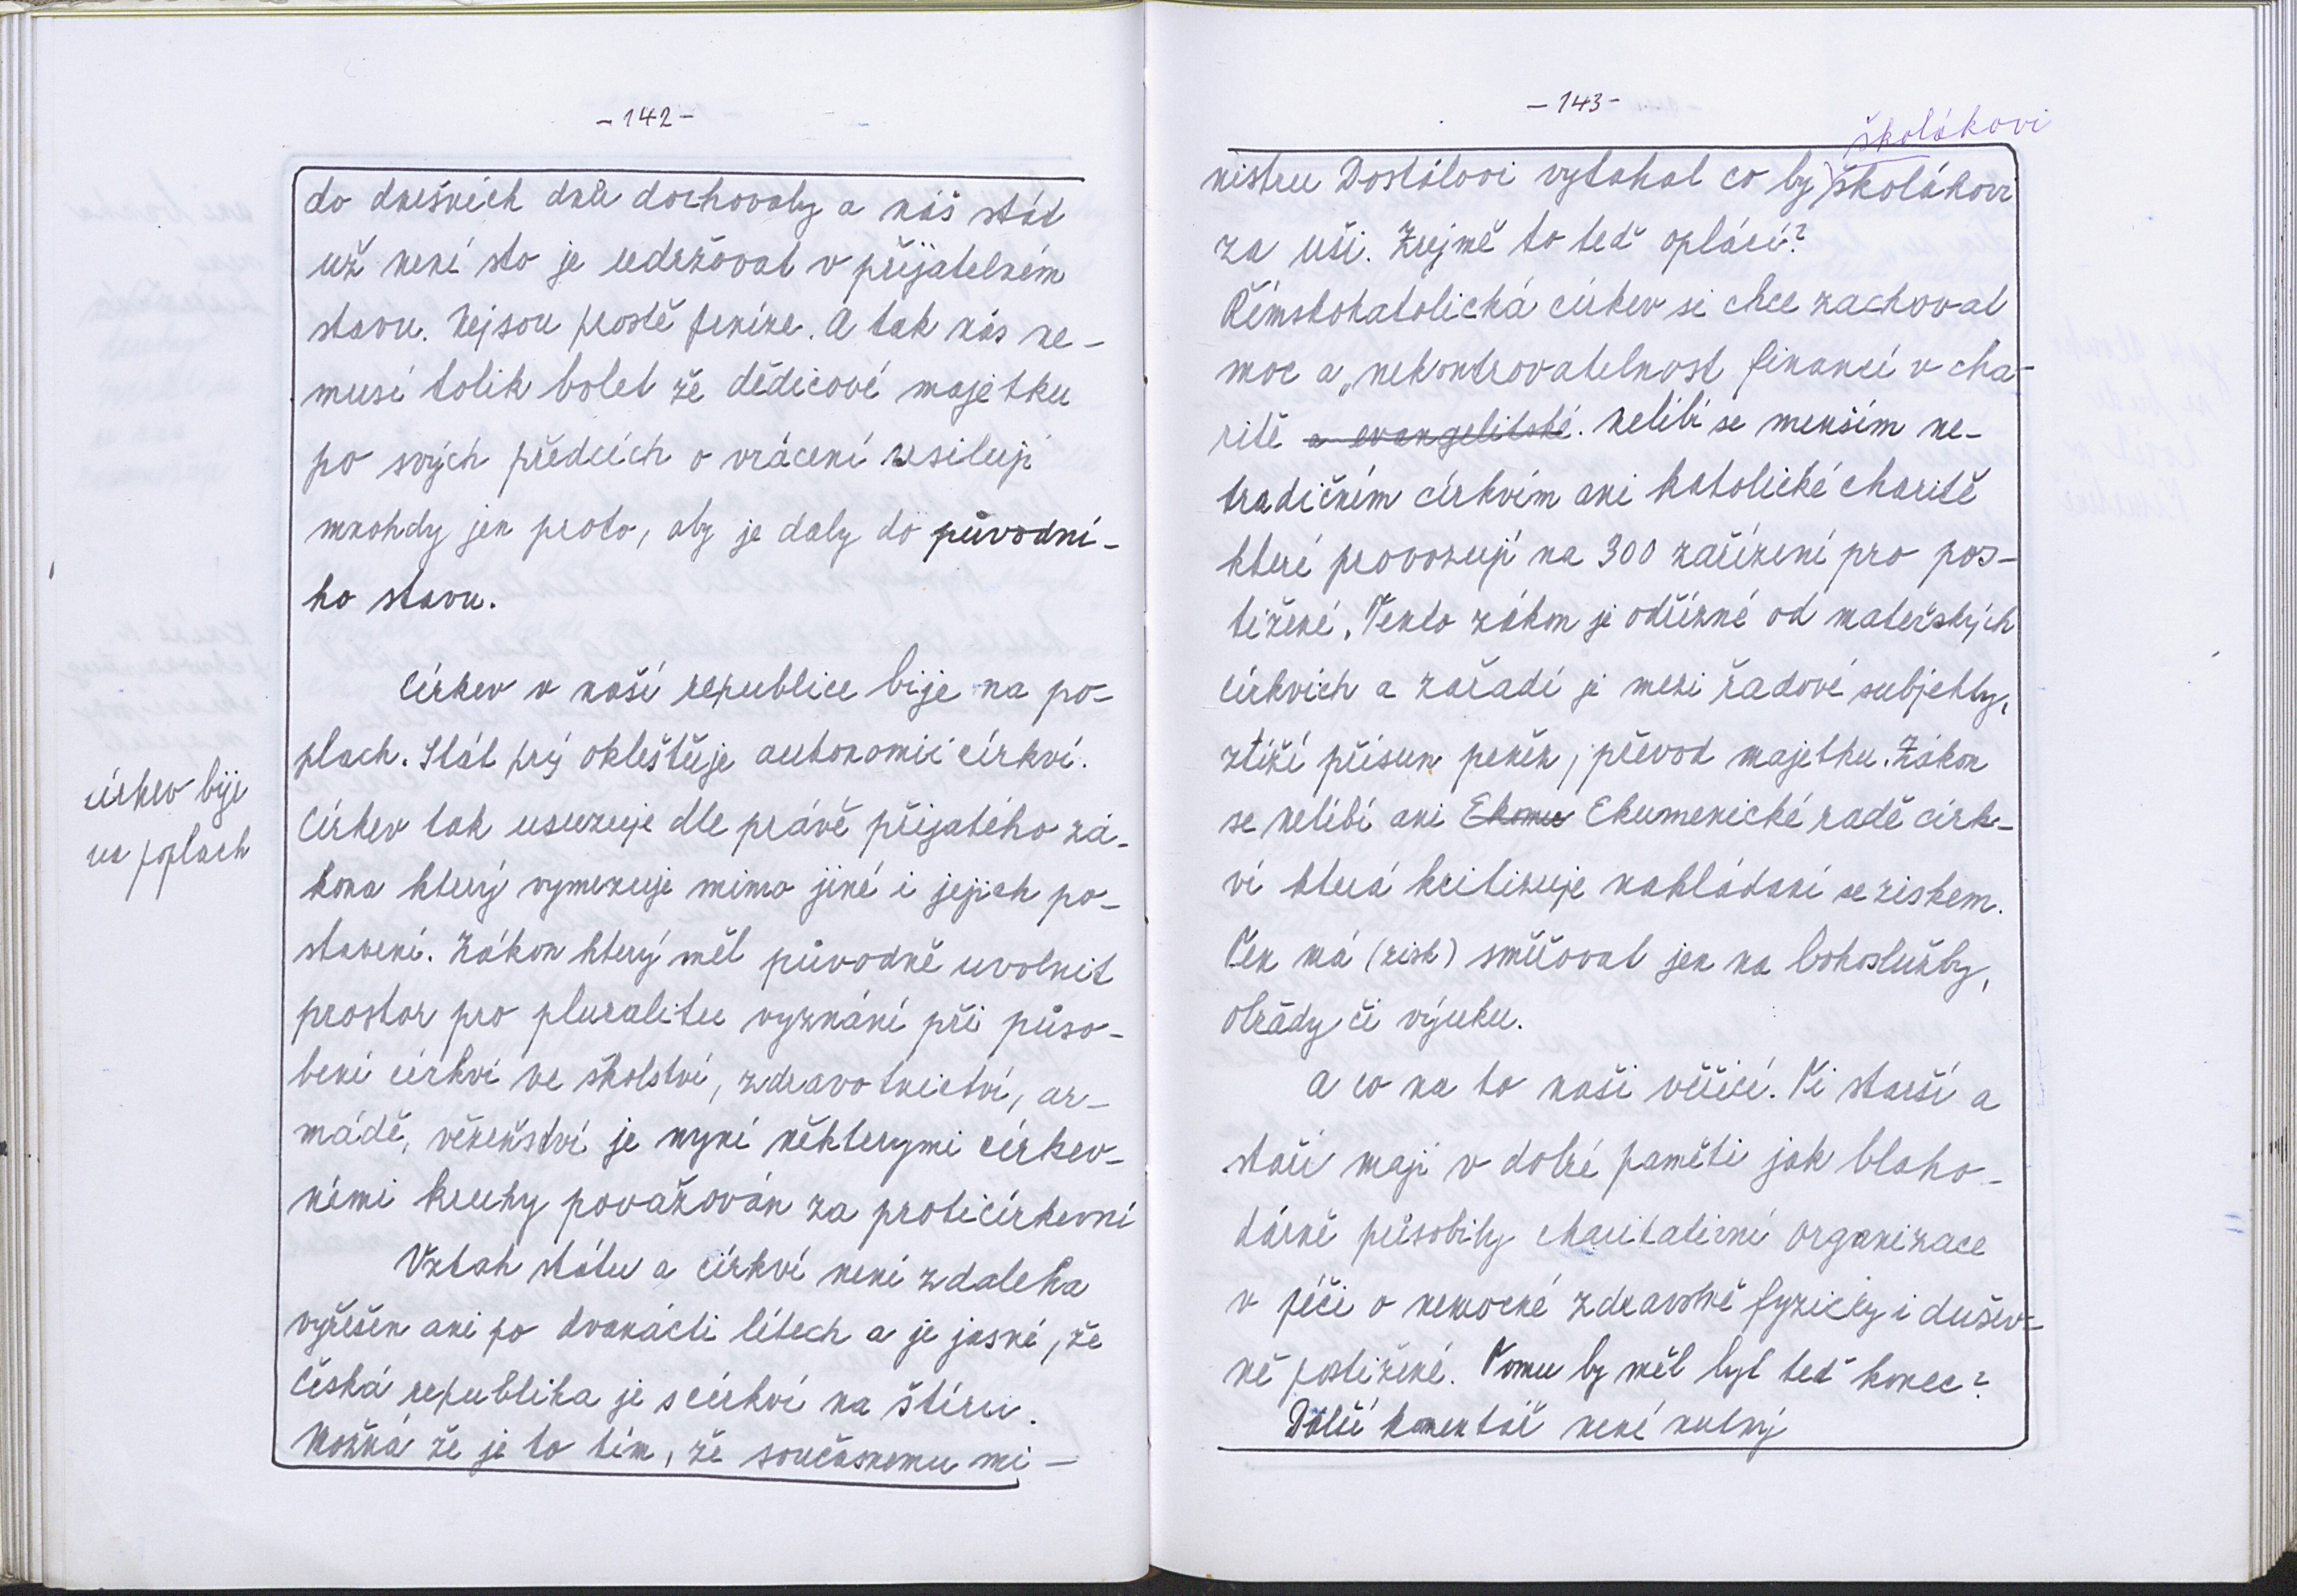 - 142 -
do dnešních dnů dochovaly a náš stát
už není sto je udržovat v přijatelném
stavu. Nejsou prostě peníze. A tak nás ne-
musí tolik bolet že dědicové majetku
po svých předcích o vrácení usilují
mnohdy jen proto, aby je daly do původní-
ho stavu.
Církev v naší republice bije na po-
plach. Stát prý okleštuje autonomii církví.
Církev tak usuzuje dle právě přijatého zá-
kona který vymezuje mimo jiné i jejich po-
stavení. Zákon který měl původně uvolnit
prostor pro pluralitu vyznání při půso-
bení církví ve školství, zdravotnictví, ar-
mádě, vězeňství je nyní některými církev-
ními kruhy považován za proticírkevní
Vztah státu a církví není zdaleka
vyřešen ani po dvanácti létech a je jasné, že
Česká republika je s církví na štíru.
Možná že je to tím, že současnemu mi-
církev bije
na poplach
- 143 -
školákovi
nistru Dostálovi vytahal co by školákovi
za uši. Zrejmě to teď oplácí?
Římskokatolická církev si chce zachovat
moc a „nekontrovatelnost financí v cha-
ritě a evangelitské. Nelíbí se menším ne-
tradičním církvím ani katolické charitě
které provozují na 300 zařízení pro pos-
tižené. Tento zákon je odřízné od mateřských
církvích a zařadí je mezi řadové subjekty,
ztíží přísun peněz, převod majetku. Zákon
se nelíbí ani Ekome Ekumenické radě círk-
ví která kritizuje nakládaní se ziskem.
Ten má (zisk) směřovat jen na bohoslužby,
obřady či výuku.
A co na to naši věřící. Ti starší a
staří mají v dobré paměti jak blaho-
dárně působily charitativní organizace
v péči o nemocné zdravotně fyzicky i dušev-
ně postižené. Tomu by měl být teď konec?
Další komentář není nutný